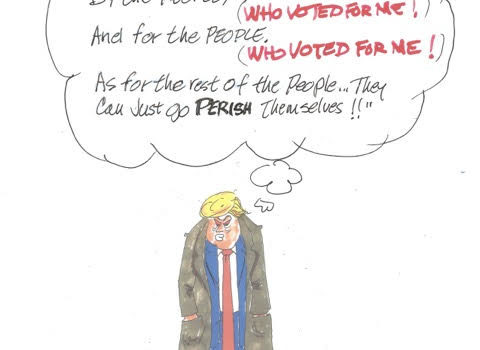 (WHO VOTED FOR ME!)
And for the PEOPLE.
(WHO VOTED FOR ME!)
As for the rest of the People... They
Can Just go PERISH Themselves!!"